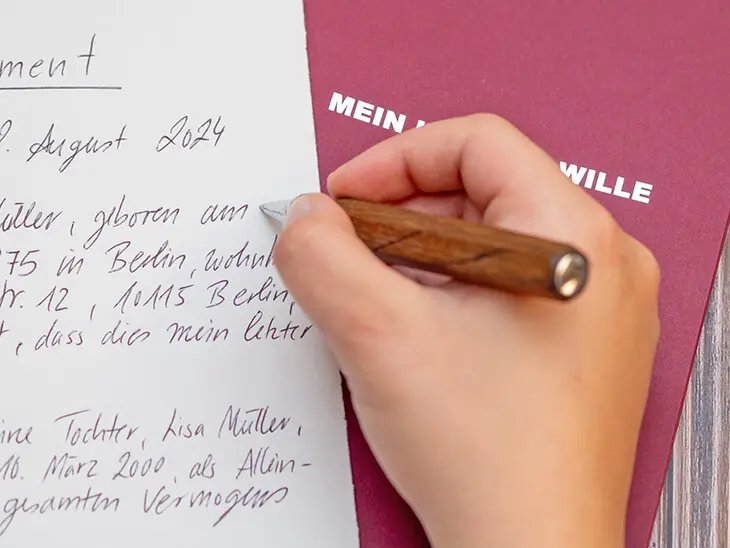 ment
. August 2024
Müller, geboren am
75 in Berlin, wohnh
tr. 12, 10115 Berlin,
t, dass dies mein letzter
ine Tochter, Lisa Müller,
10. März 2000, als Allein-
gesamten Vermögens
MEIN
WILLE